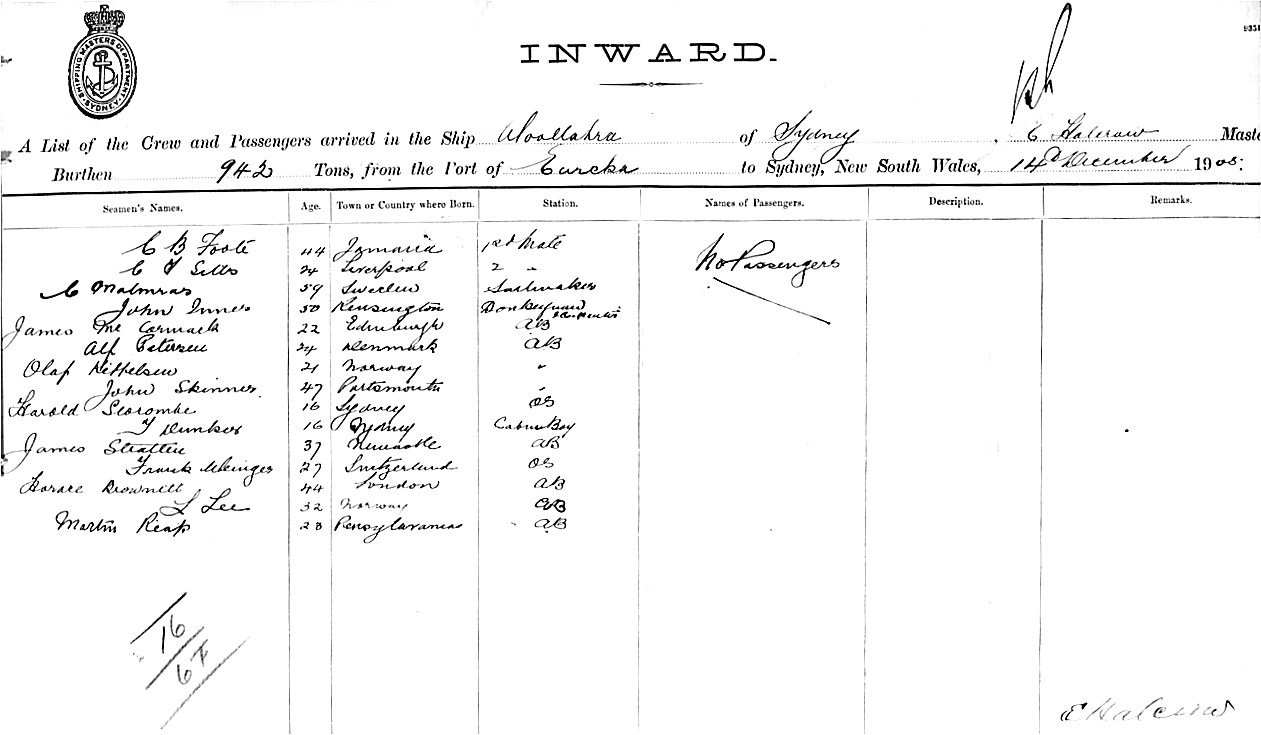 SHIPPING MASTERS DEPARTMENT SYDNEY
9351
INWARD.
A List of the Crew and Passengers arrived in the Ship Woollahra of Sydney, E Halcrow Maste
Burthen 942 Tons, from the Port of Eureka to Sydney, New South Wales, 14th December 1905:
Seamen's Names. Age. Town or Country where Born. Station. Names of Passengers. Description. Remarks.
C B Foote 44 Jamaica 1st Mate No Passengers
C Sells 24 Liverpool 2 "
C Malmras 59 Sweden Sailmaker
John Innes 50 Kensington Donkeyman
James Mc Cormack 22 Edinburgh AB
Alf Petersen 24 Denmark AB
Olaf 21 Norway "
John Skinner 47 Portsmouth "
Harold Slocombe 16 Sydney OS
16 Sydney Cabin Boy
James Stratten 37 Newcastle AB
Frank 27 Switzerland OS
Horace Brownell 44 London AB
L Lee 32 Norway AB
Martin Reap 23 Pensylavania AB
16
E Halcrow